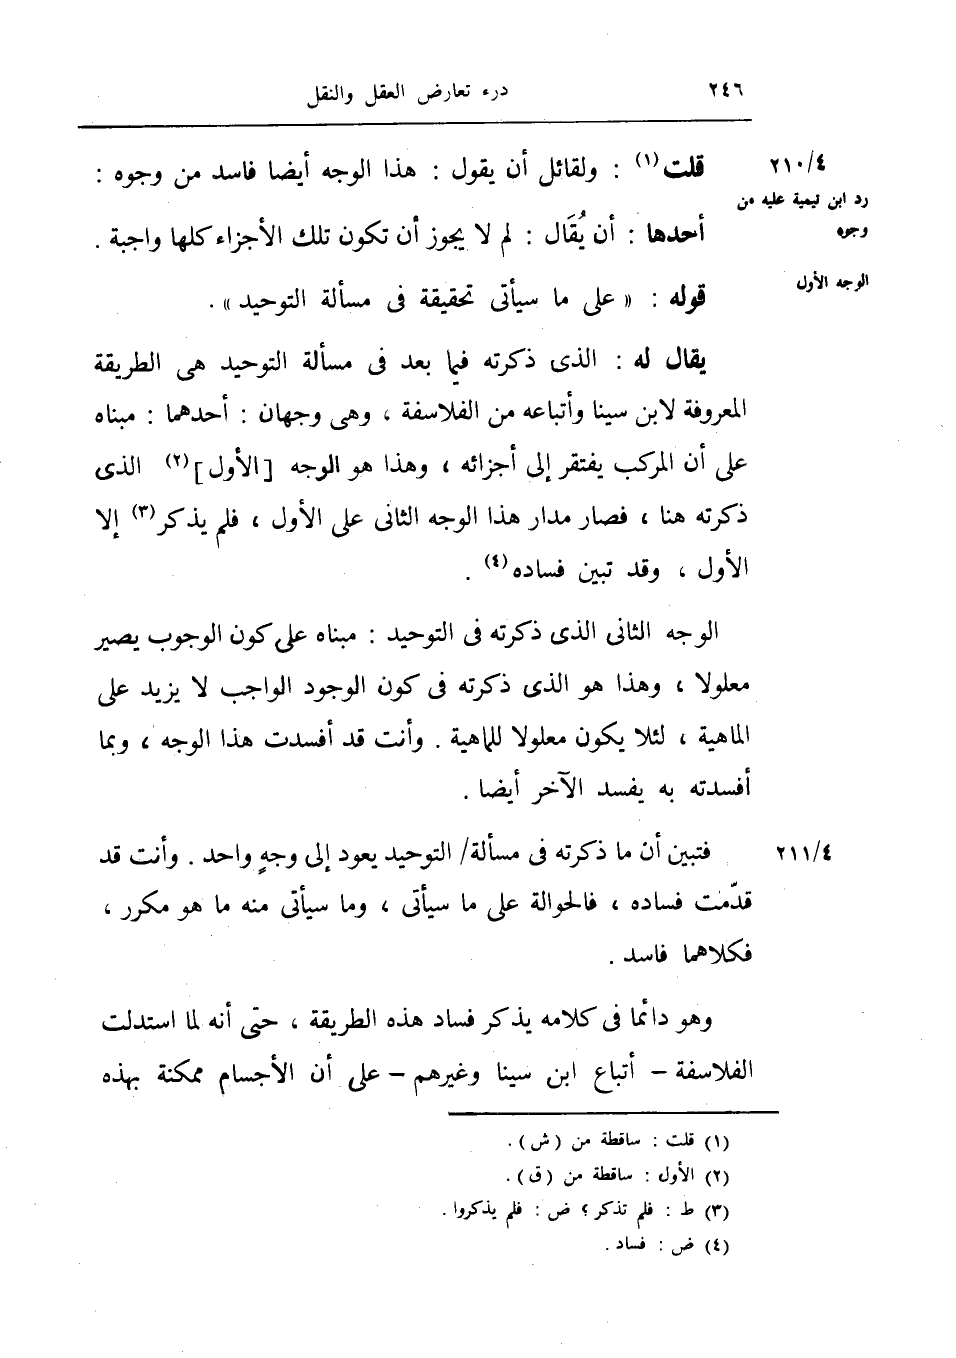 ٢٤٦
درء تعارض العقل والنقل
٢١٠/٤
قلت(١) : ولقائل أن يقول : هذا الوجه أيضا فاسد من وجوه :
رد ابن تيمية عليه من
وجوه
أحدها : أن يُقَال : لم لا يجوز أن تكون تلك الأجزاء كلها واجبة .
الوجه الأول
قوله : « على ما سيأتى تحقيقة فى مسألة التوحيد » .
يقال له : الذى ذكرته فيما بعد فى مسألة التوحيد هى الطريقة
المعروفة لابن سينا وأتباعه من الفلاسفة ، وهى وجهان : أحدهما : مبناه
على أن المركب يفتقر إلى أجزائه ، وهذا هو الوجه [الأول](٢) الذى
ذكرته هنا ، فصار مدار هذا الوجه الثانى على الأول ، فلم يذكر(٣) إلا
الأول ، وقد تبين فساده(٤) .
الوجه الثانى الذى ذكرته فى التوحيد : مبناه على كون الوجوب يصير
معلولا ، وهذا هو الذى ذكرته فى كون الوجود الواجب لا يزيد على
الماهية ، لئلا يكون معلولا للماهية . وأنت قد أفسدت هذا الوجه ، وبما
أفسدته به يفسد الآخر أيضا .
٢١١/٤
فتبين أن ما ذكرته فى مسألة/ التوحيد يعود إلى وجهٍ واحد . وأنت قد
قدّمت فساده ، فالحوالة على ما سيأتى ، وما سيأتى منه ما هو مكرر ،
فكلاهما فاسد .
وهو دائما فى كلامه يذكر فساد هذه الطريقة ، حتى أنه لما استدلت
الفلاسفة – أتباع ابن سينا وغيرهم – على أن الأجسام ممكنة بهذه
(١) قلت : ساقطة من (ش) .
(٢) الأول : ساقطة من (ق) .
(٣) ط : فلم تذكر ؟ ض : فلم يذكروا .
(٤) ض : فساد .